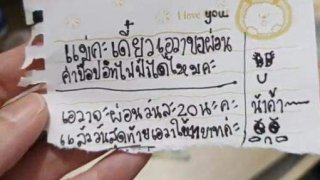 I love you
แม่คะเดี๋ยวเอวาขอผ่อน
ค่าช็อปอิทไฟมีได้ไหมคะ
เอวาจะผ่อนวันละ20นะคะ
น้าค้า~~
แล้ววันสุดท้ายเอวาให้ค่ะ